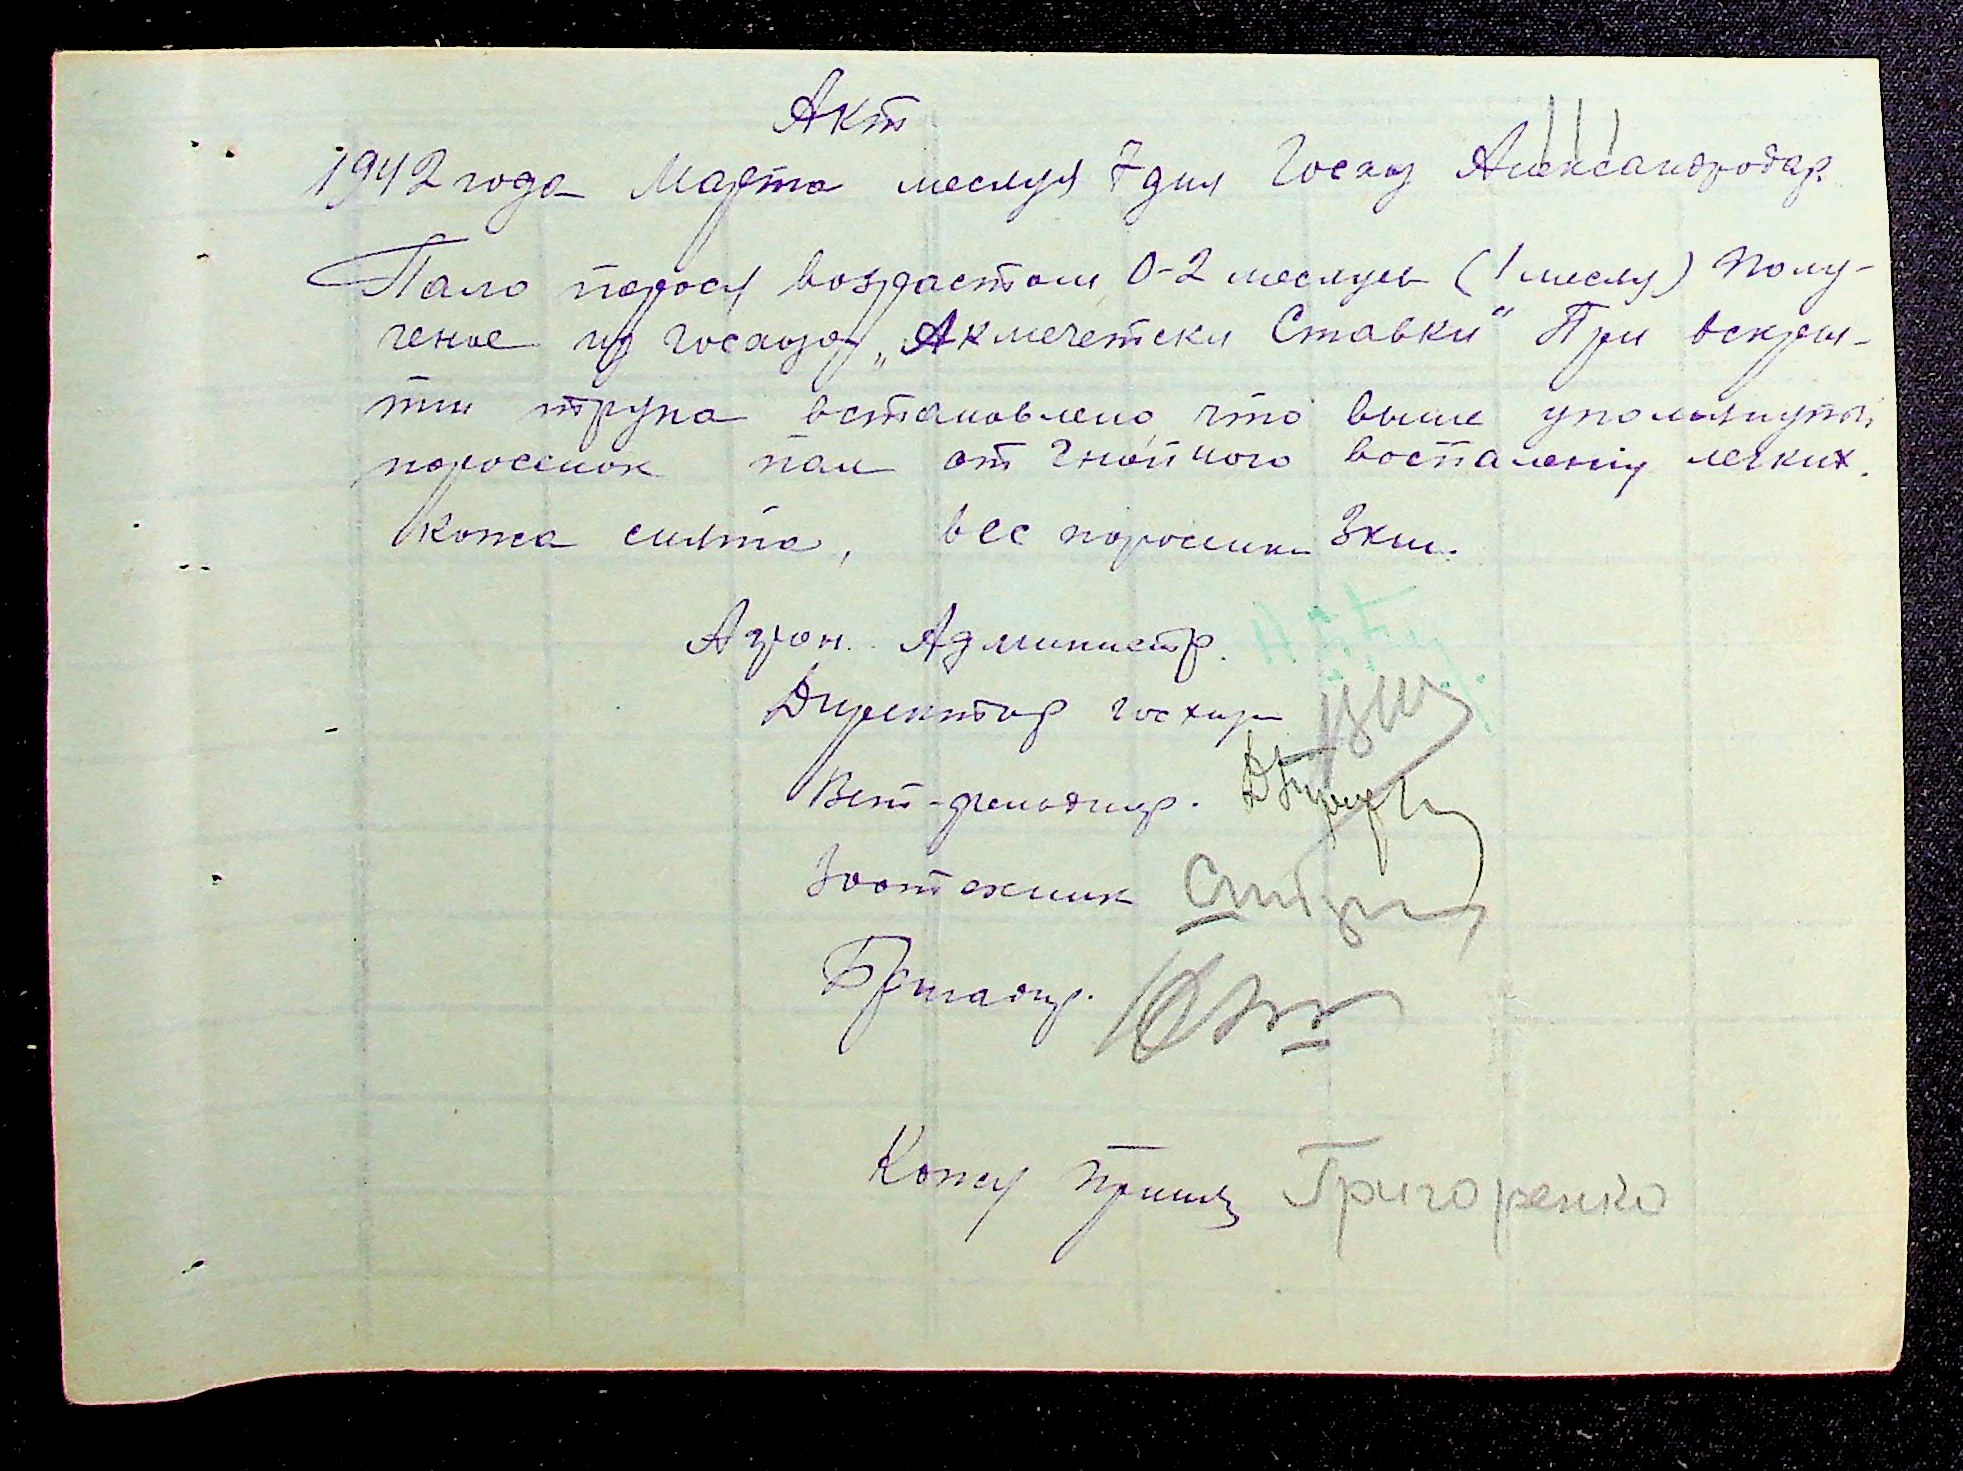 Акт
1942 года Марта месяця 7 дня Госхоз Александродар.
Пало порося возрастом 0-2 месяцы (1 месяц) Полу-
ченое из госхоза „Акмечетски Ставки" При вскры-
тии трупа встановлено, что выше упомянутый
поросенок пал от гнойного воспаления легких.
Кожа снята, вес поросенка 3 кил.
Агрон. Администр.
Директор госхоза
Вет-фельдшер.
Зоотехник
Бригадир.
Кожу принял Григоренко